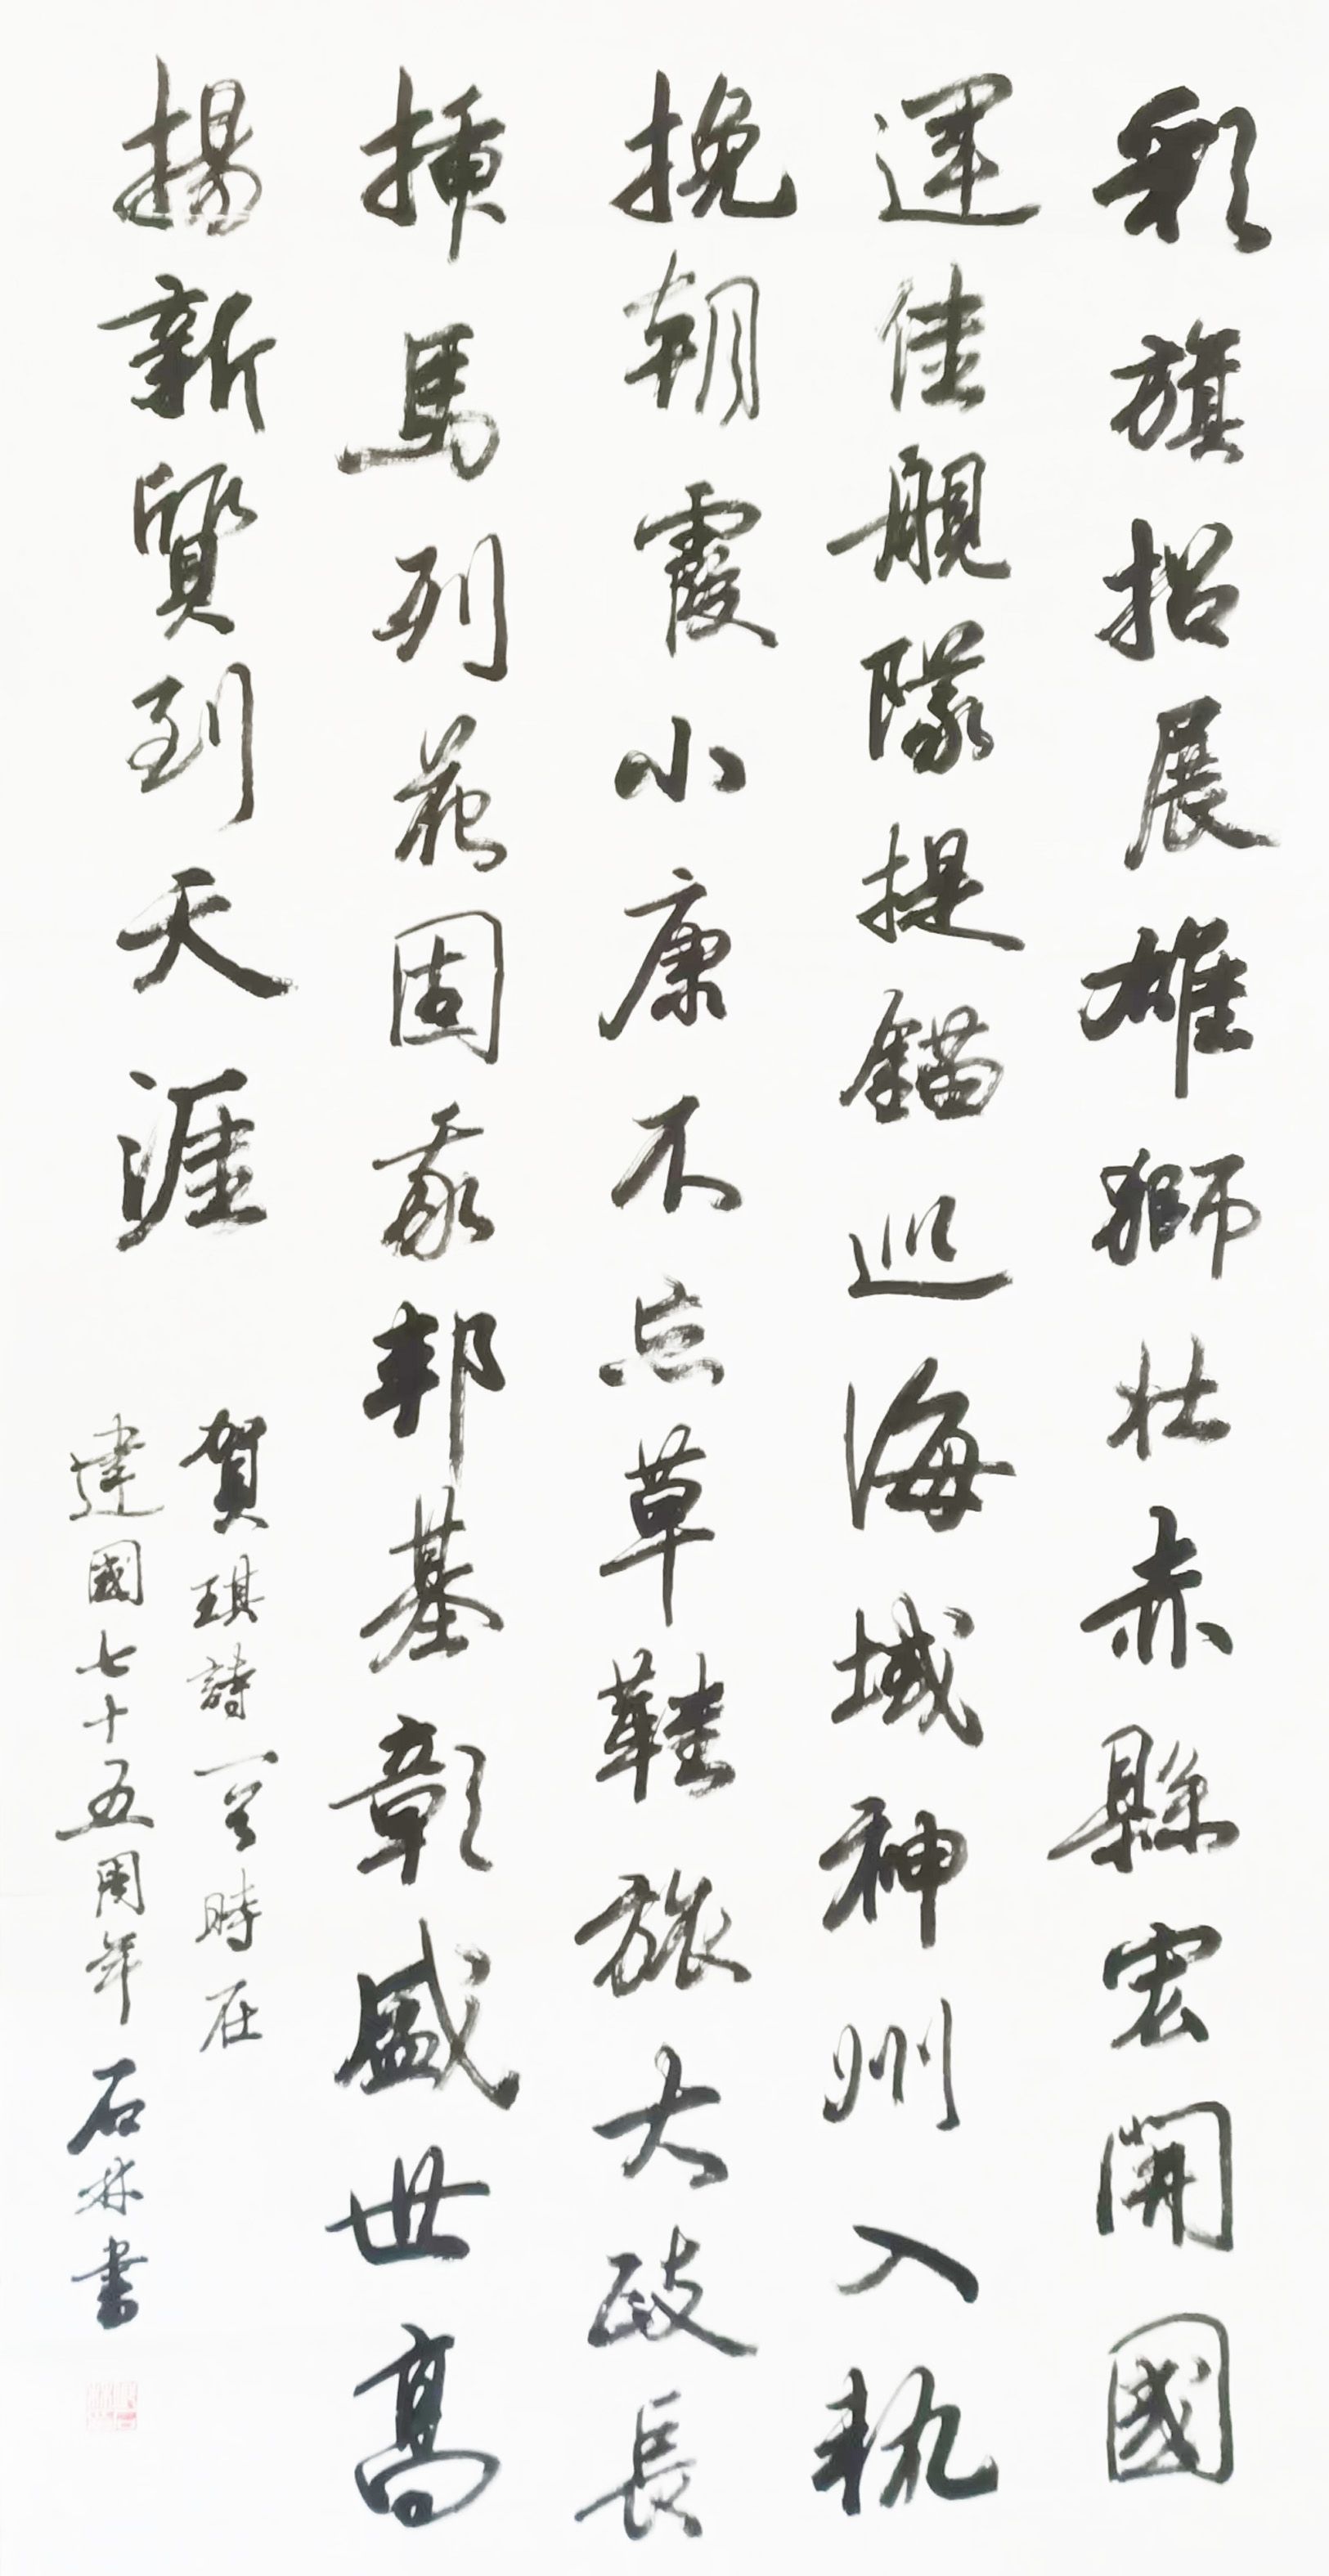 彩旗招展雄獅壯赤縣宏開國
運佳艦隊提錨巡海域神州入軌
挽朝霞小康不忘草鞋旅大政長
挿馬列花固我邦基彰盛世高
揚新質到天涯
賀琪詩一首時在
建國七十五周年石林書